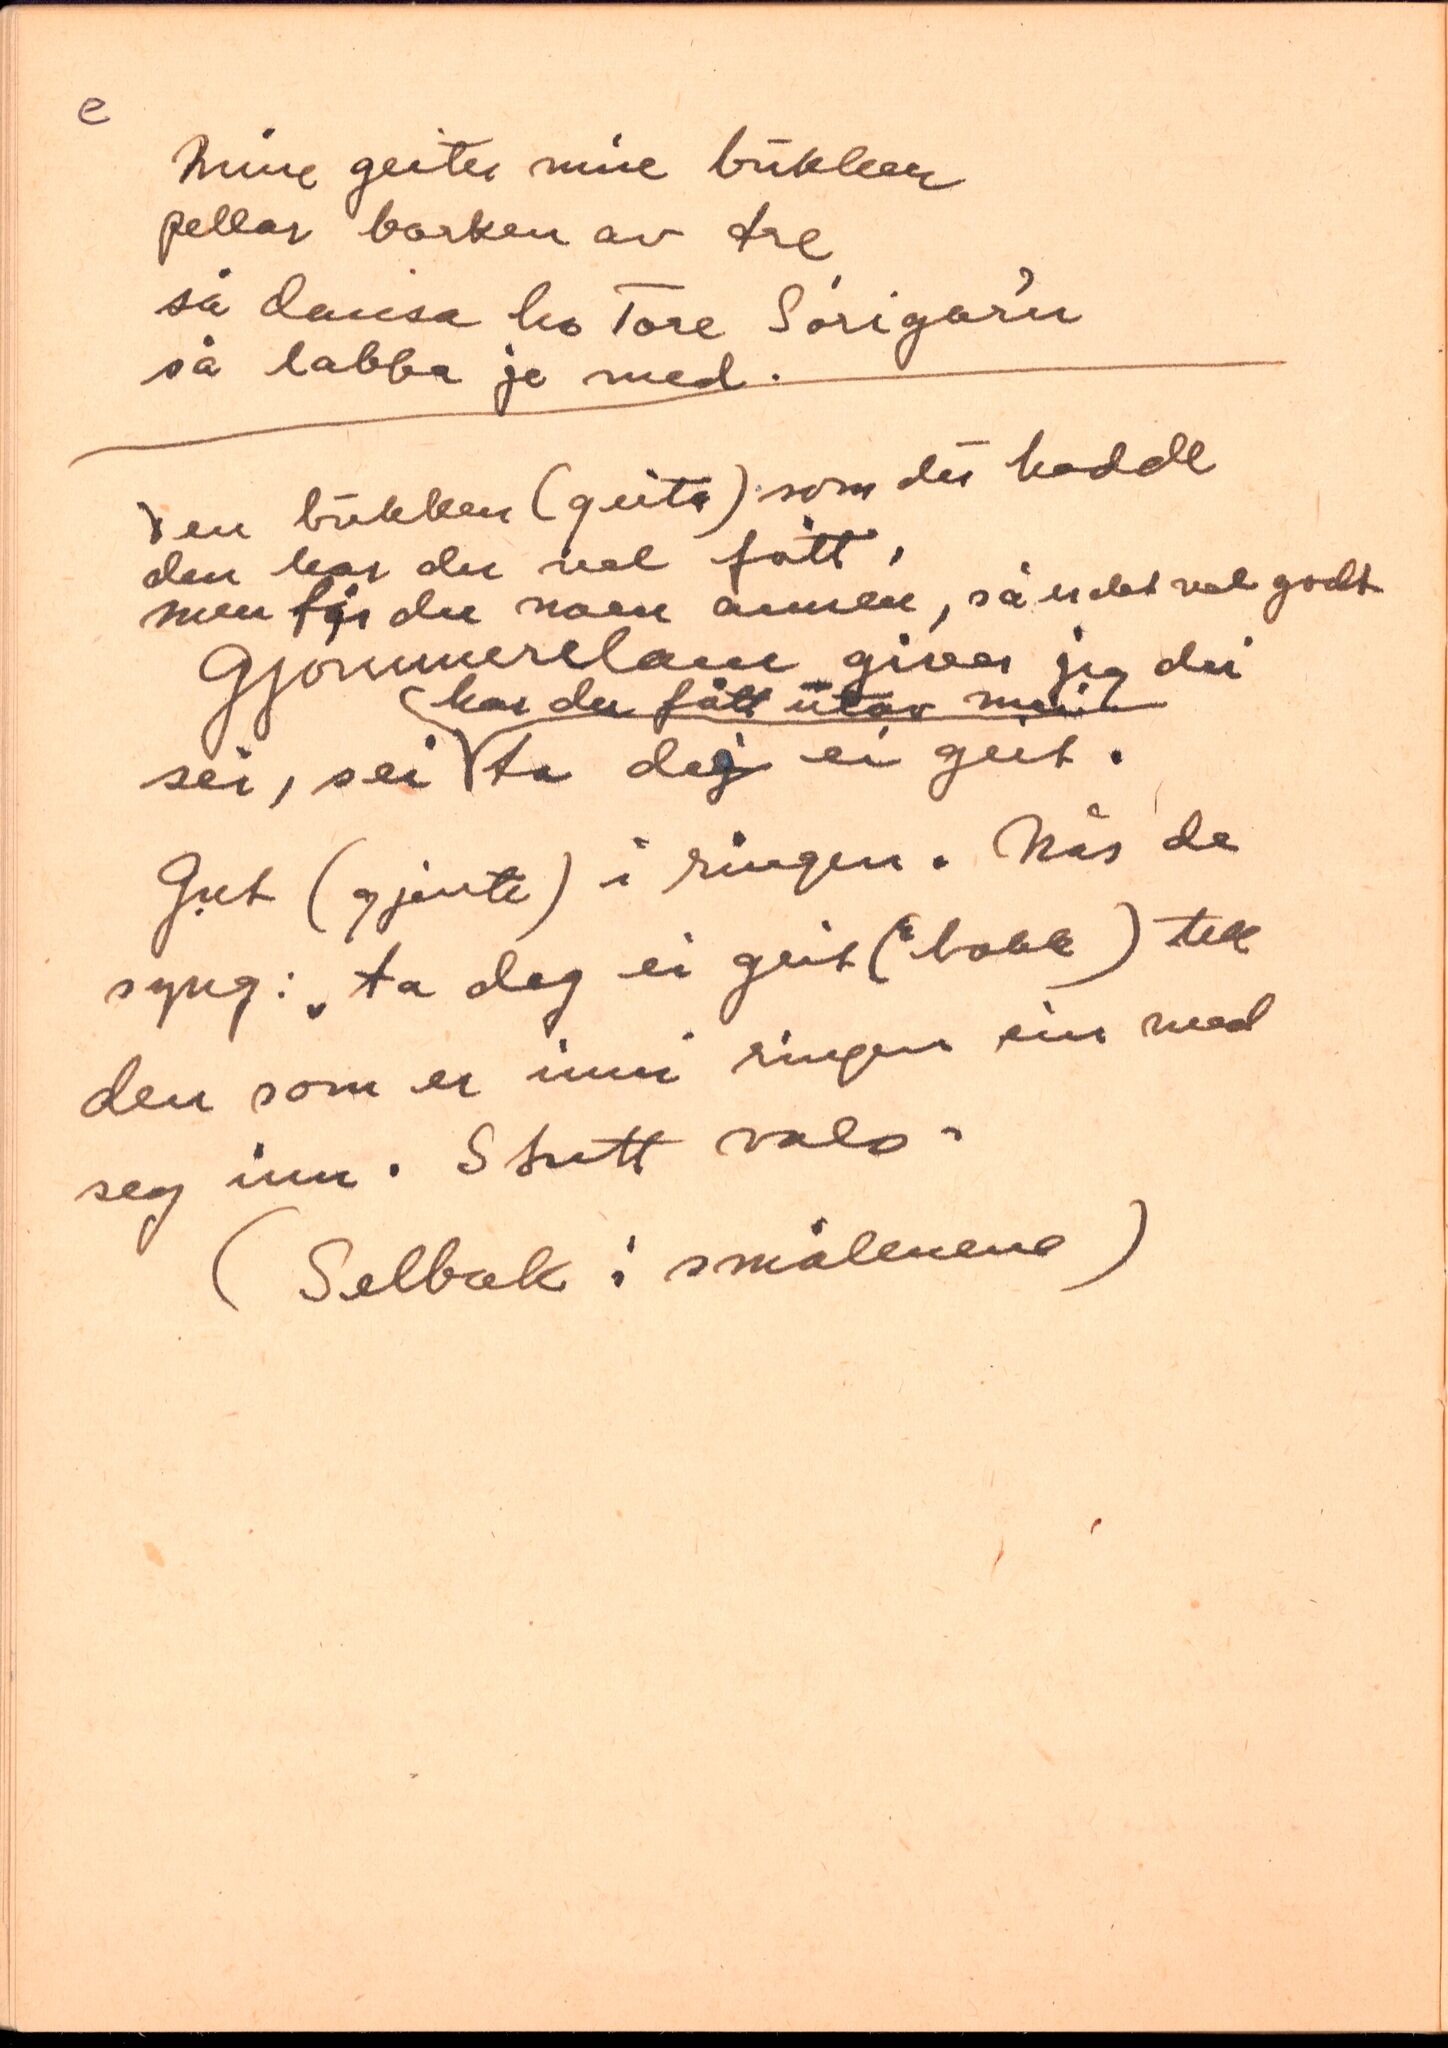 e
Mine geiter mine bukker
pellar borken av tre
så dansa ho Tore Sørigar'n
så labba je med.
Den bukken (geita) som du hadde
den har du vel fått,
men får du noen annen, så er det vel godt
Gjømmerelam giver jeg dei
har du fått utav mei
sei, sei ta deg ei geit.
Gut (gjente) i ringen. Når de
syng: „ta deg ei geit ("bokk) tek
den som er inni ringen ein med
seg inn. Stutt vals.
(Selbæk i smålenene)